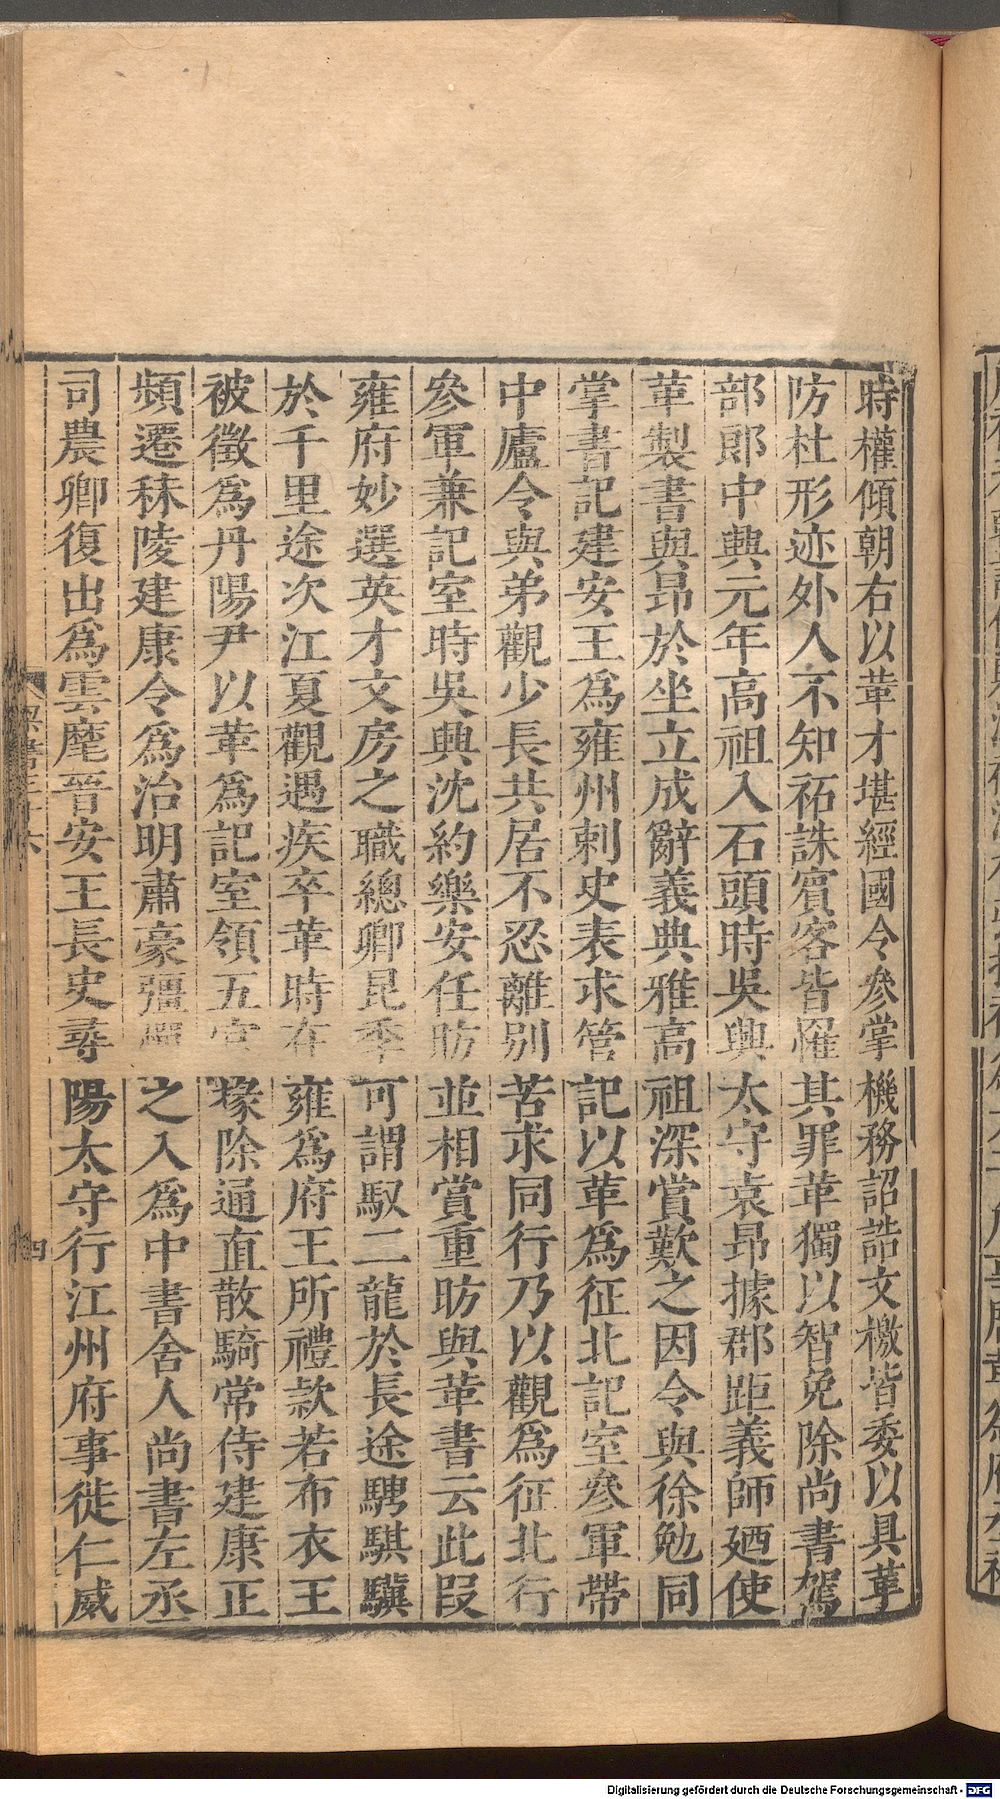 時權傾朝右以革才堪經國令參掌機務詔誥文檄皆委以具革
防杜形迹外人不知祏誅賓客皆罹其罪革獨以智免除尚書駕
部郎中興元年高祖入石頭時吳興太守袁昂據郡距義師廼使
革製書與昂於坐立成辭義典雅高祖深賞歎之因令與徐勉同
掌書記建安王爲雍州刺史表求管記以革爲征北記室參軍帶
中廬令與弟觀少長共居不忍離別苦求同行乃以觀爲征北行
參軍兼記室時吳興沈約樂安任昉並相賞重昉與革書云此段
雍府妙選英才文房之職總卿昆季可謂馭二龍於長途騁騏驥
於千里途次江夏觀遇疾卒革時在雍爲府王所禮款若布衣王
被徵爲丹陽尹以革爲記室領五官掾除通直散騎常侍建康正
頻遷秣陵建康令爲治明肅豪彊憚之入爲中書舍人尚書左丞
司農卿復出爲雲麾晉安王長史尋陽太守行江州府事徙仁威
四
Digitalisierung gefördert durch die Deutsche Forschungsgemeinschaft - DFG